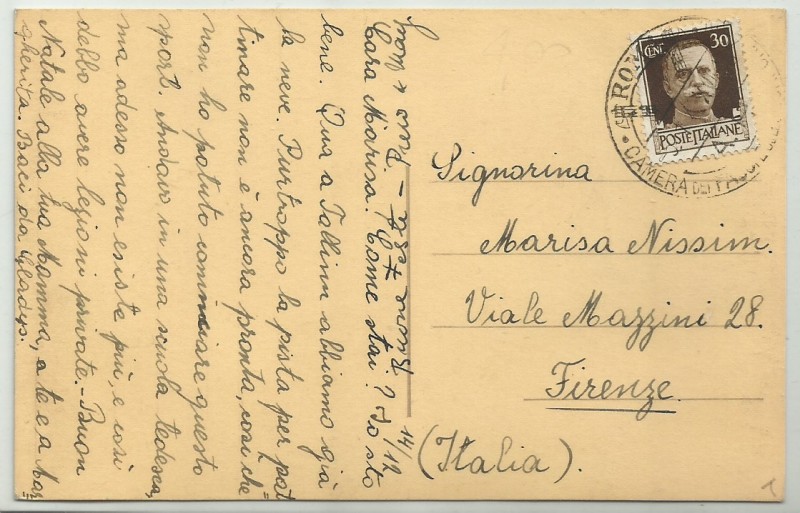 14/12
Cara Marisa! Come stai? Io sto
bene. Qua a Tallinn abbiamo già
la neve. Purtroppo la pista per pat=
tinare non è ancora pronta, così che
non ho potuto cominciare questo
sport. Andavo in una scuola tedesca,
ma adesso non esiste più, e così
debbo avere lezioni private.- Buon
Natale alla tua Mamma, a te e a Mar=
gherita. Baci da Gladys.
CENT 30
POSTE ITALIANE
ROMA
CAMERA DEI
Signorina
Marisa Nissim.
Viale Mazzini 28.
Firenze.
(Italia).